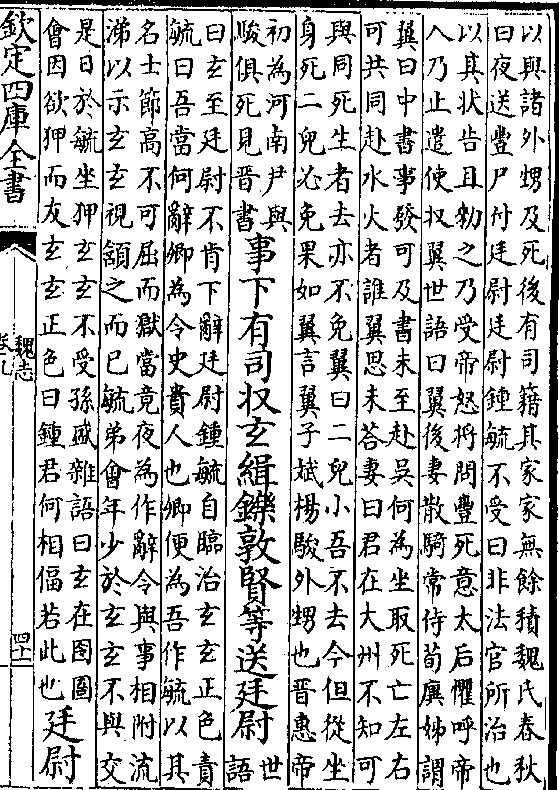 以與諸外甥及死後有司籍其家家無餘積魏氏春秋
曰夜送豐尸付廷尉廷尉鍾毓不受曰非法官所治也
以其状告且勑之乃受帝怒將問豐死意太后懼呼帝
入乃止遣使収翼世語曰翼後妻散騎常侍荀廙姊謂
翼曰中書事發可及書未至赴吳何為坐取死亡左右
可共同赴水火者誰翼思未荅妻曰君在大州不知可
與同死生者去亦不免翼曰二兒小吾不去今但從坐
身死二兒必免果如翼言翼子斌楊駿外甥也晉惠帝
初為河南尹與
駿俱死見晉書
事下有司収玄緝鑠敦賢等送廷尉
世
語
曰玄至廷尉不肯下辭廷尉鍾毓自臨治玄玄正色責
毓曰吾當何辭卿為令史責人也卿便為吾作毓以其
名士節高不可屈而獄當竟夜為作辭令與事相附流
涕以示玄玄視頷之而已毓弟會年少於玄玄不與交
是日於毓坐狎玄玄不受孫盛雜語曰玄在囹圄
會因欲狎而友玄玄正色曰鍾君何相偪若此也
廷尉
欽定四庫全書
魏志
卷九
四十一